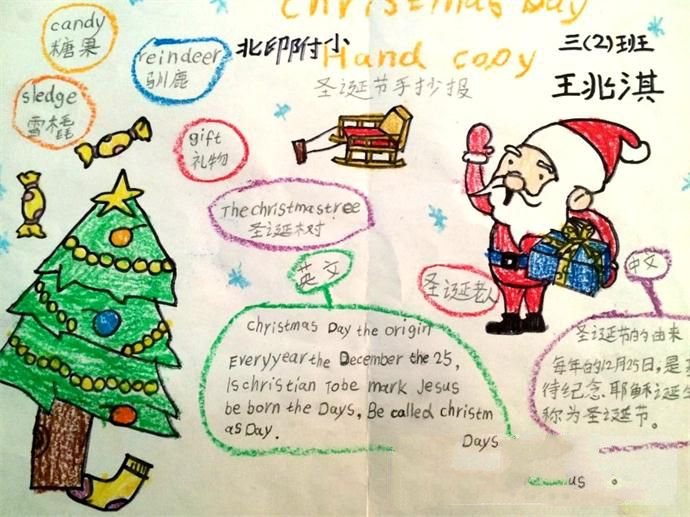 candy
糖果
reindeer
驯鹿
北印附小
Christmas Day
Hand copy
圣诞节手抄报
三(2)班
王兆淇
sledge
雪橇
gift
礼物
The christmastree
圣诞树
英文
圣诞老人
中文
Christmas Day the origin
Everyyear the December the 25,
Is christian Tobe mark Jesus
be born the Days, Be called christm
as Day.
Days
us
圣诞节的由来
每年的12月25日,是
待纪念.耶稣诞生
称为圣诞节。